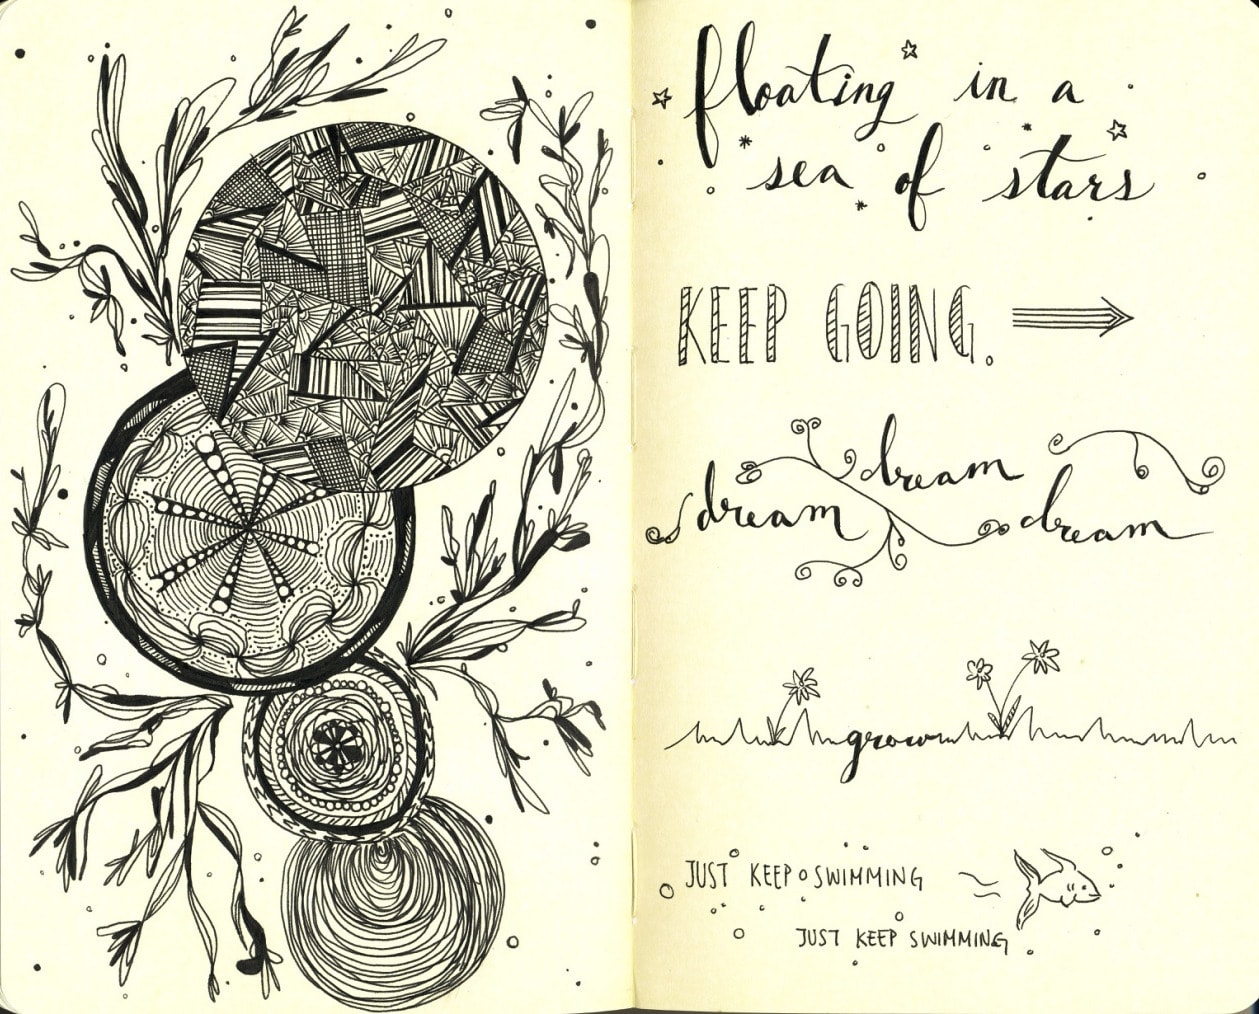 floating in a
sea of stars
KEEP GOING.
dream dream dream
grow
JUST KEEP SWIMMING
JUST KEEP SWIMMING